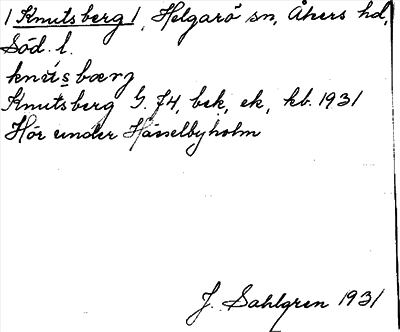 /Knutsberg/, Helgarö sn, Åkers hd,
Söd. l.
knu̇́sbærg
Knutsberg G. 74, bek, ek, kb. 1931
Hör under Hässelbyholm
J. Sahlgren 1931